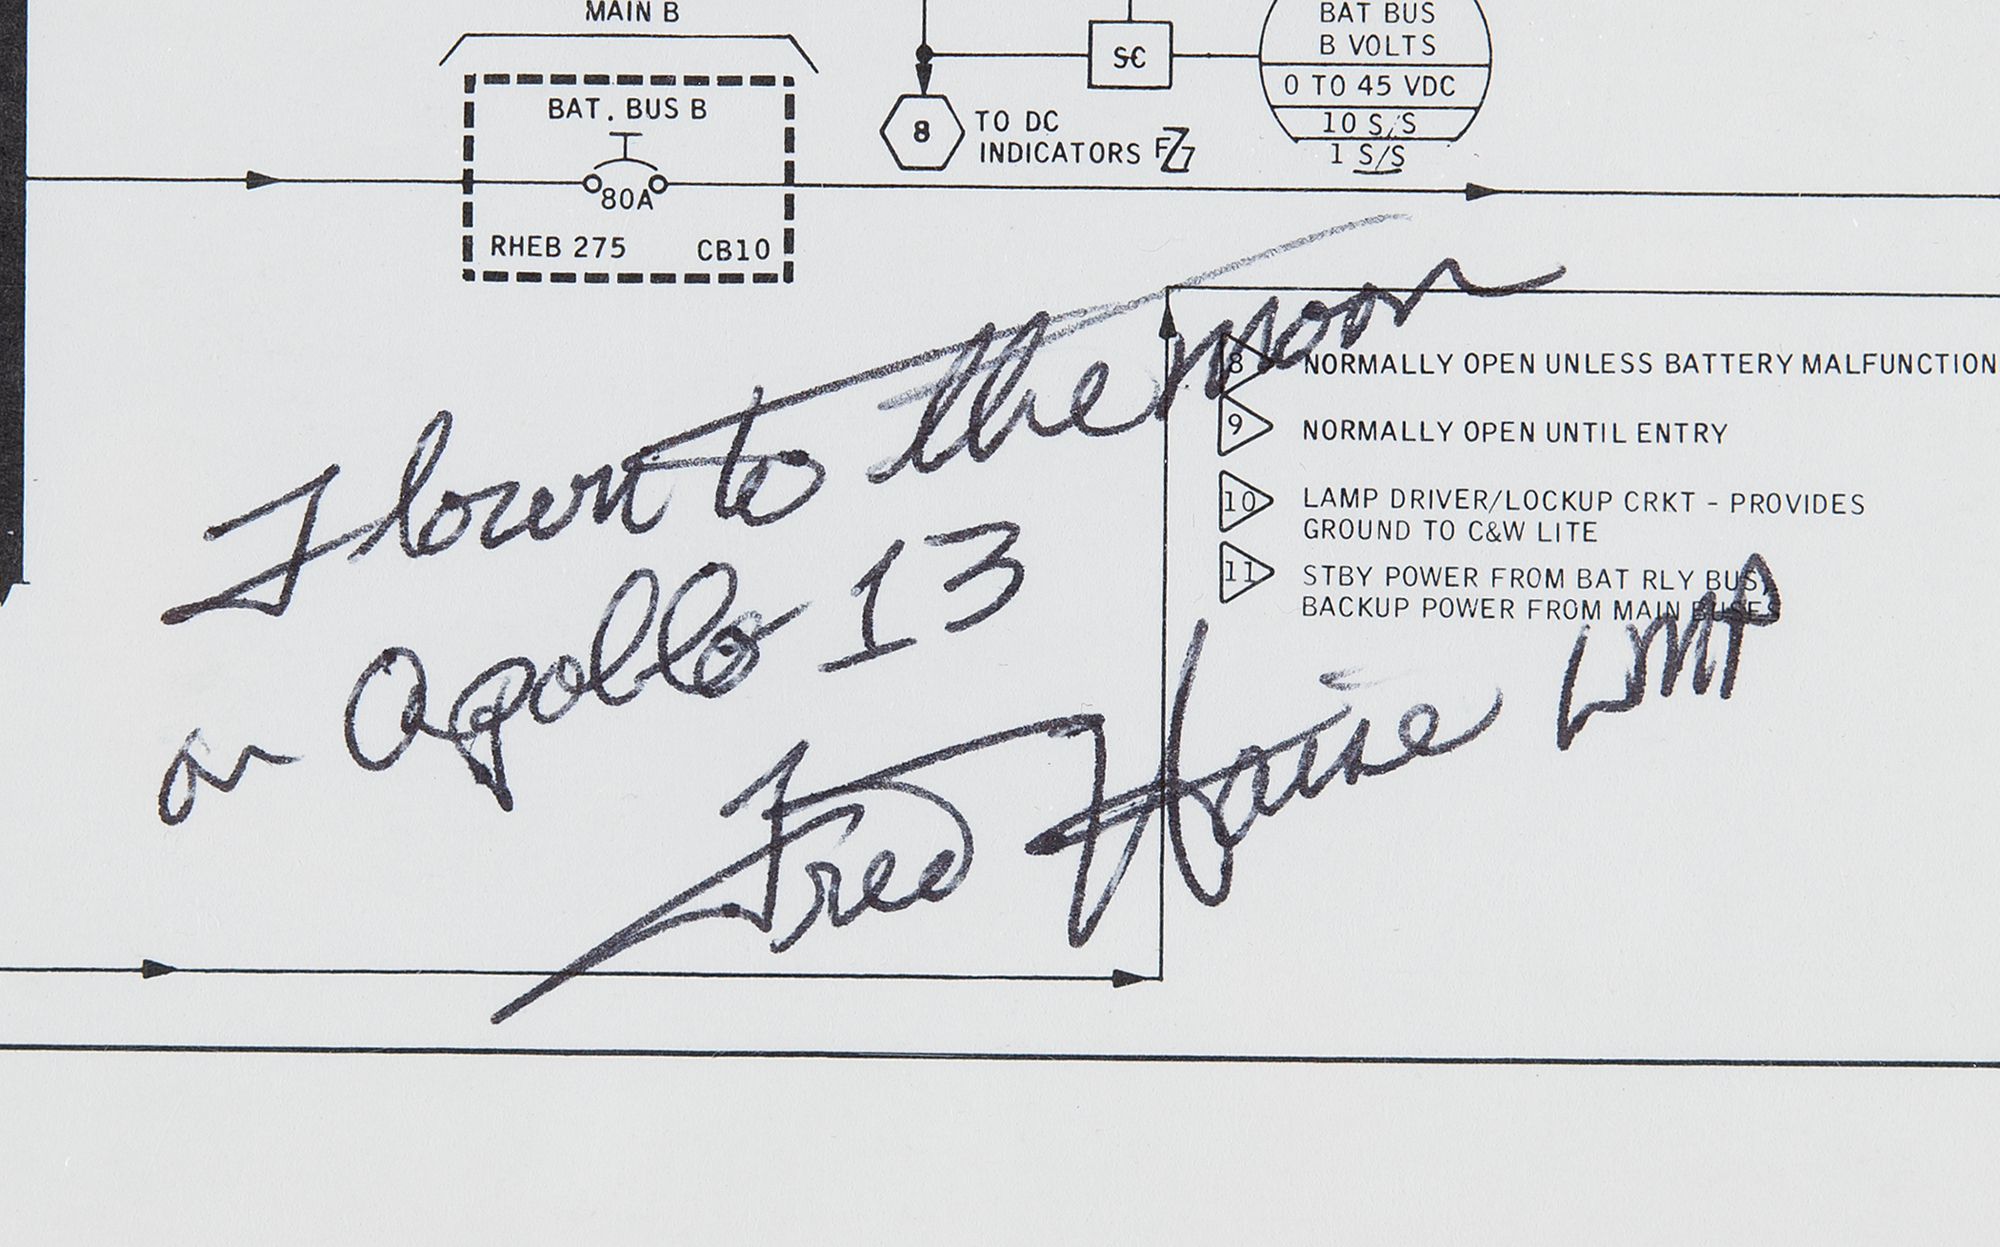 MAIN B
BAT. BUS B
80A
RHEB 275 CB10
8
TO DC
INDICATORS
SC
BAT BUS
B VOLTS
0 TO 45 VDC
10 S/S
1 S/S
8 NORMALLY OPEN UNLESS BATTERY MALFUNCTION
9 NORMALLY OPEN UNTIL ENTRY
10 LAMP DRIVER/LOCKUP CRKT - PROVIDES
GROUND TO C&W LITE
11 STBY POWER FROM BAT RLY BUS,
BACKUP POWER FROM MAIN BUSES
Flown to the moon
on Apollo 13
Fred Haise LMP